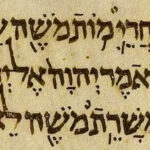 חֲרֵי מוֹת מֹשֶׁה עֶ
אמֶר יְהוָה אֶל יְה
מְשָׁרֵת מֹשֶׁה לֵא